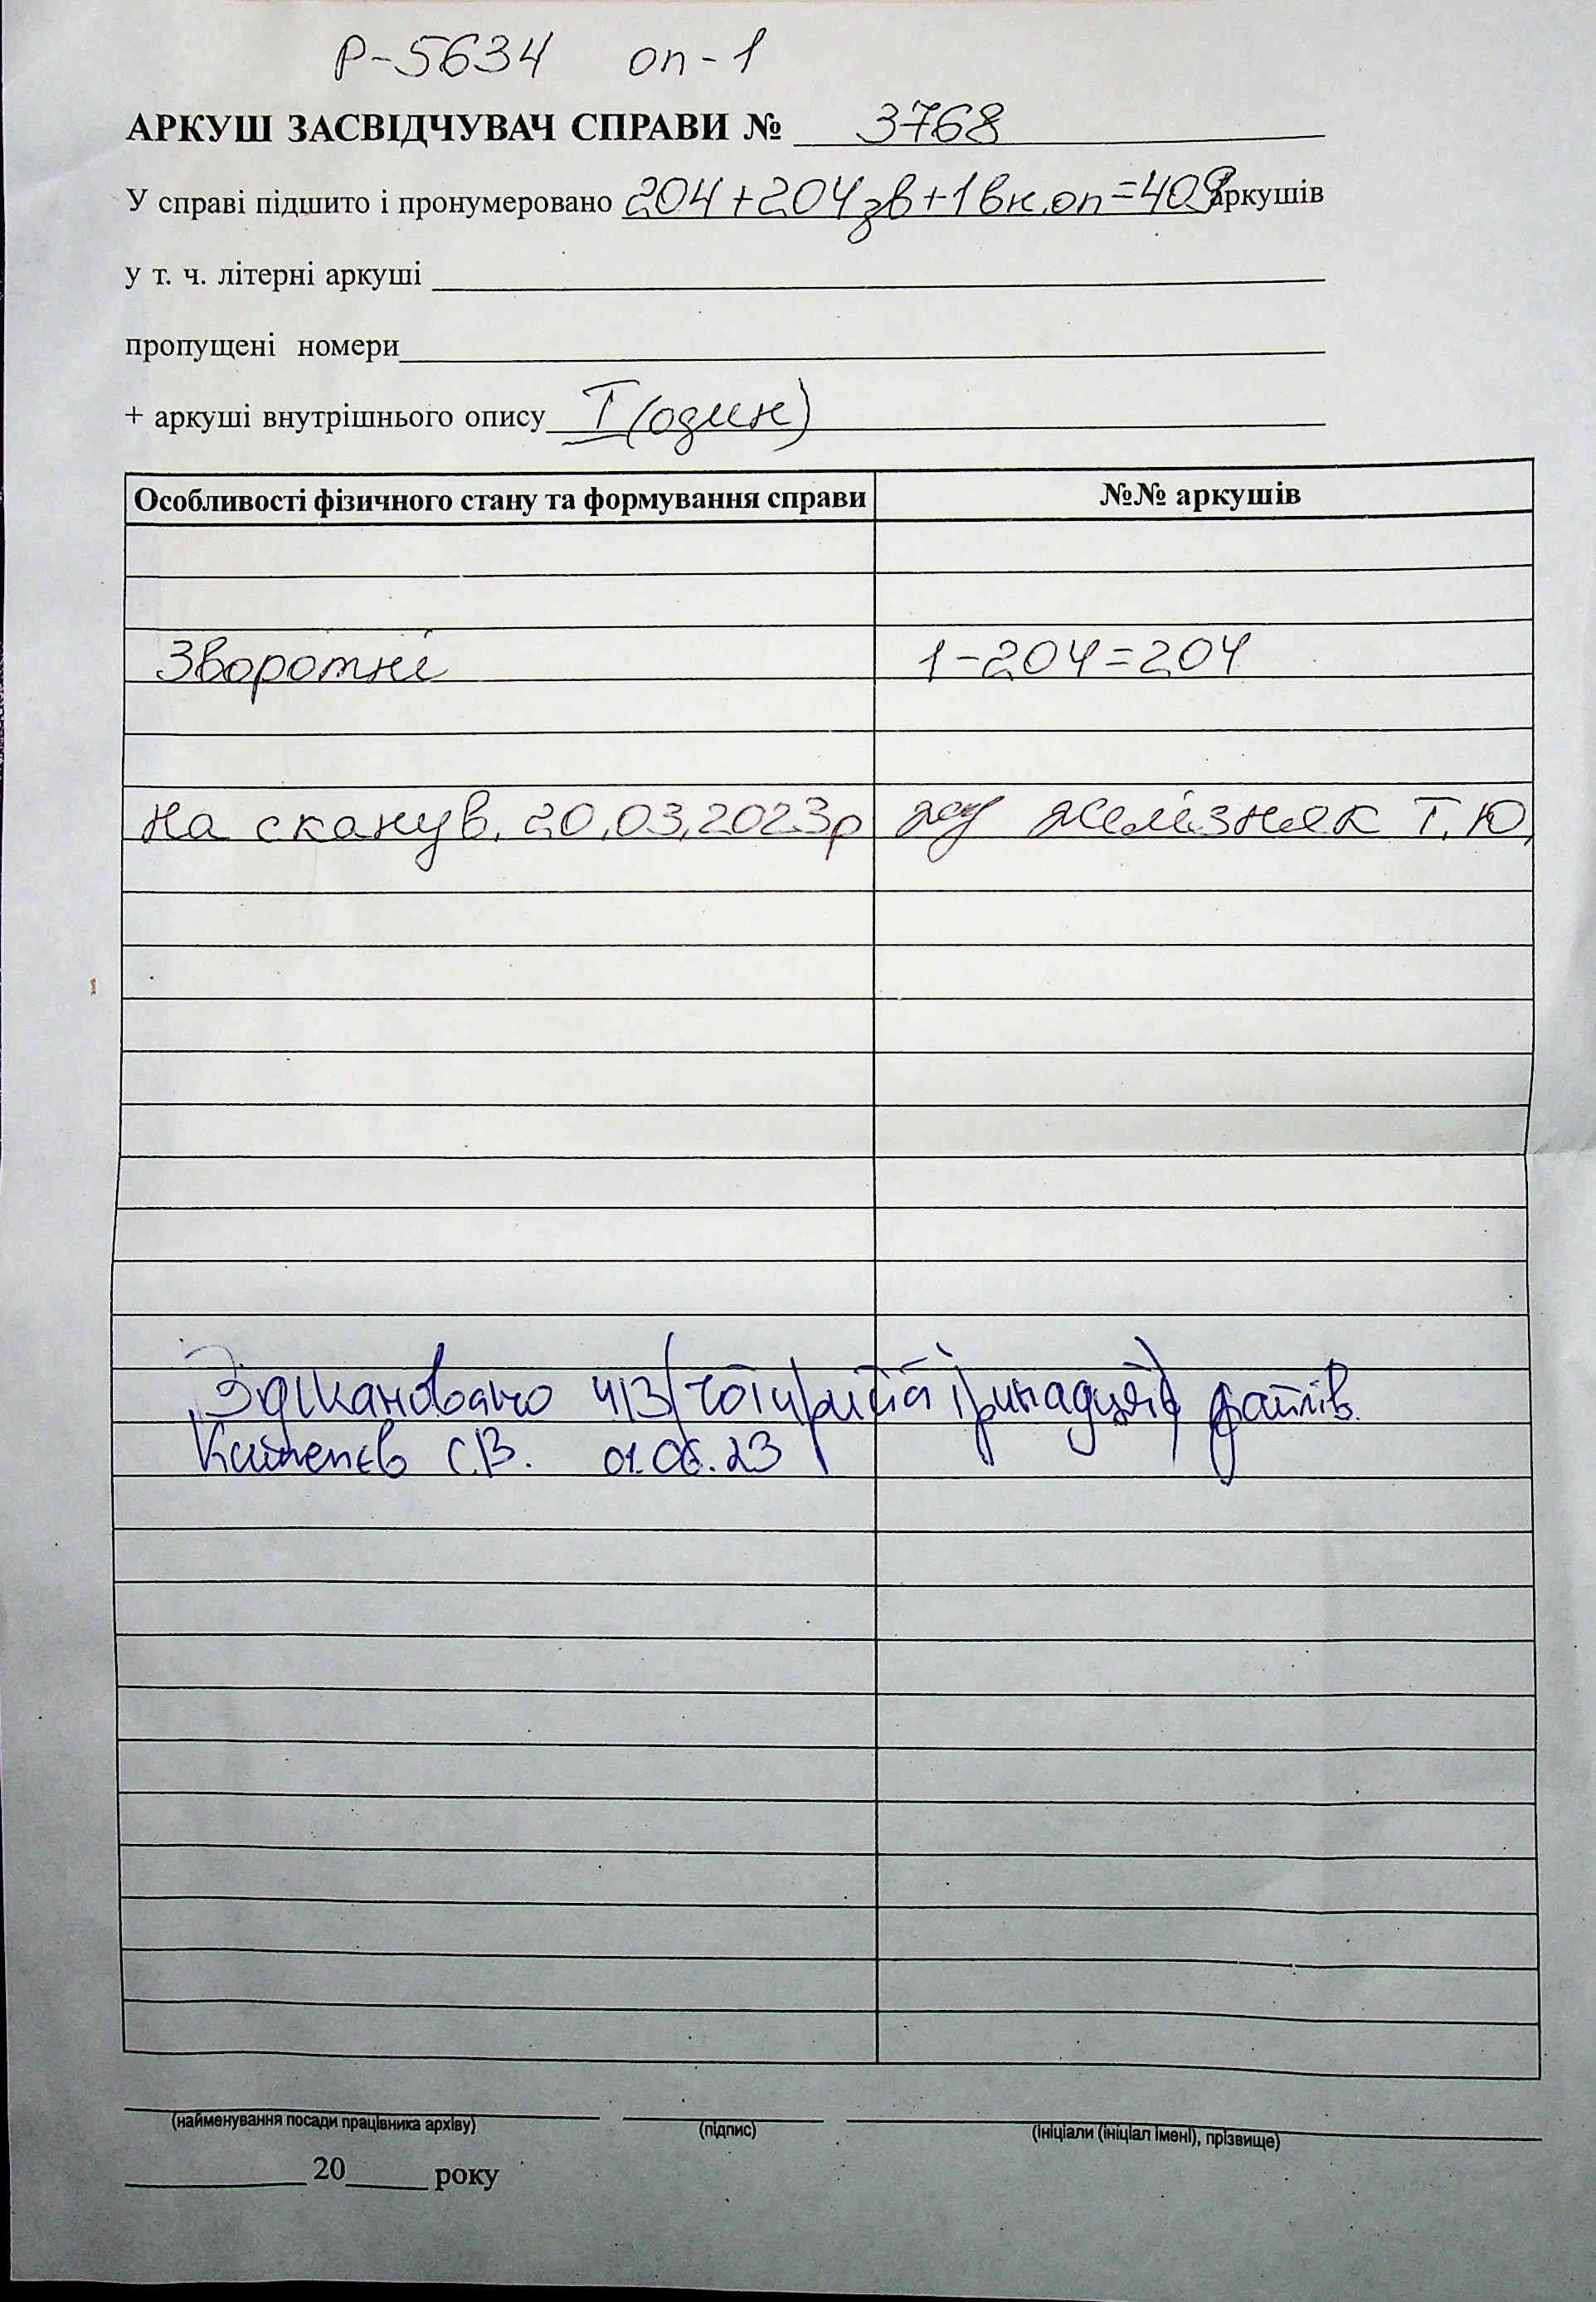 Р-5634 оп-1
АРКУШ ЗАСВІДЧУВАЧ СПРАВИ № 3768
У справі підшито і пронумеровано 204+204зв+1вн.оп=409 аркушів
у т. ч. літерні аркуші
пропущені номери
+ аркуші внутрішнього опису I (один)
Особливості фізичного стану та формування справи №№ аркушів
Зворотні 1-204=204
На сканув. 20.03.2023р Желізняк Т.Ю.
Зісканованo 413 (чотириста тринадцять) файлів.
С.В. 01.06.23
(найменування посади працівника архіву) (підпис) (ініціали (ініціал імені), прізвище)
20 року